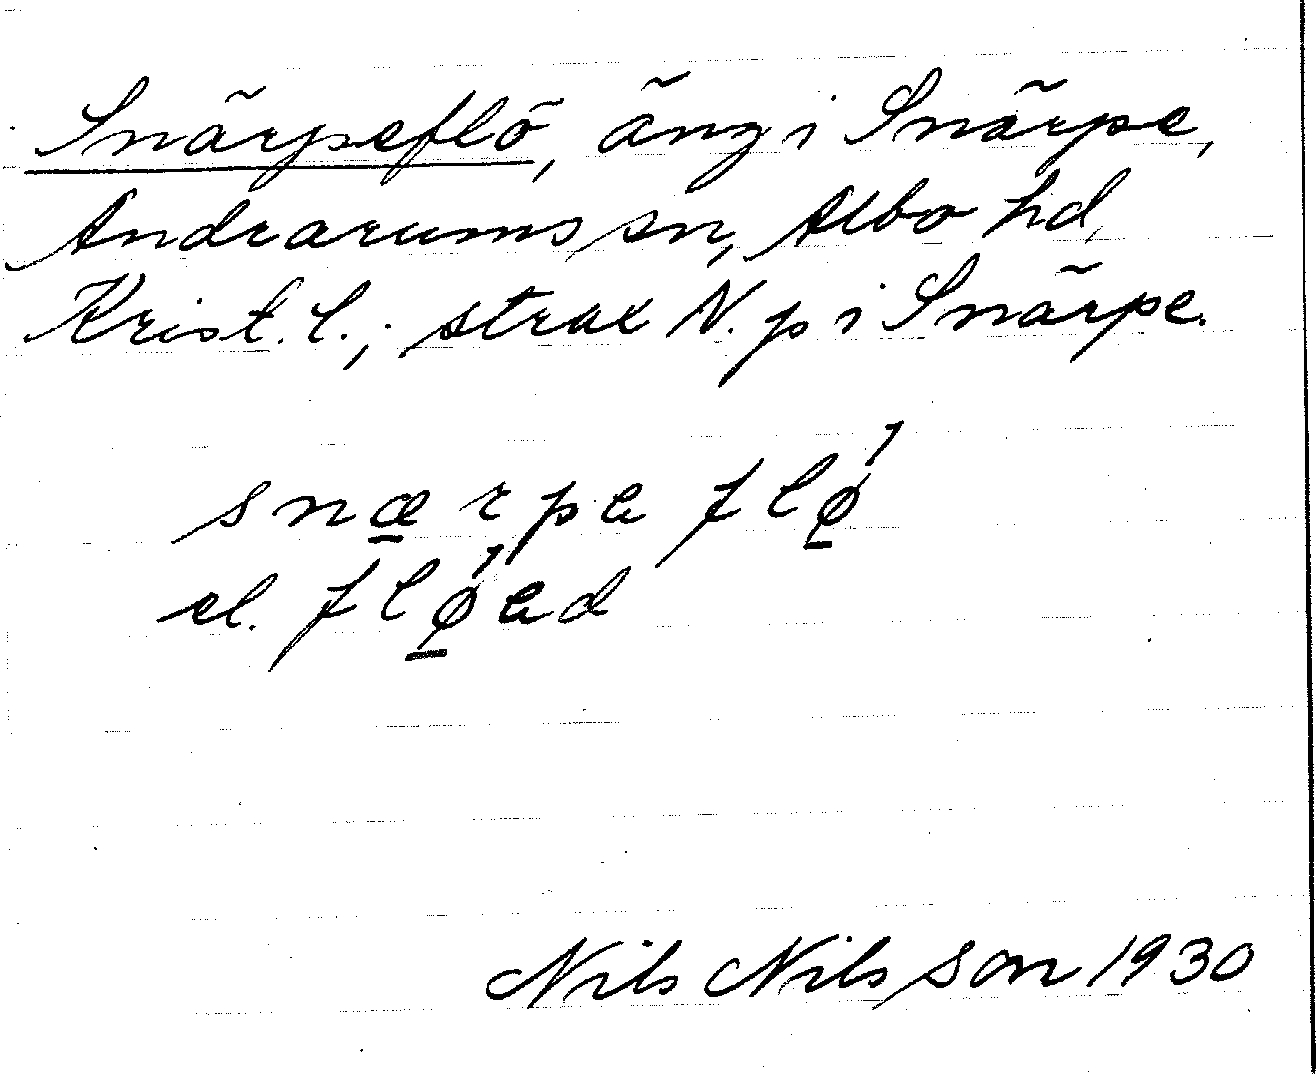 Snärpeflö, äng i Snärpe,
Andrarums sn, Albo hd,
Krist. l.; strax N. p i Snärpe.
snærpe flø
el. fløed
Nils Nilsson 1930